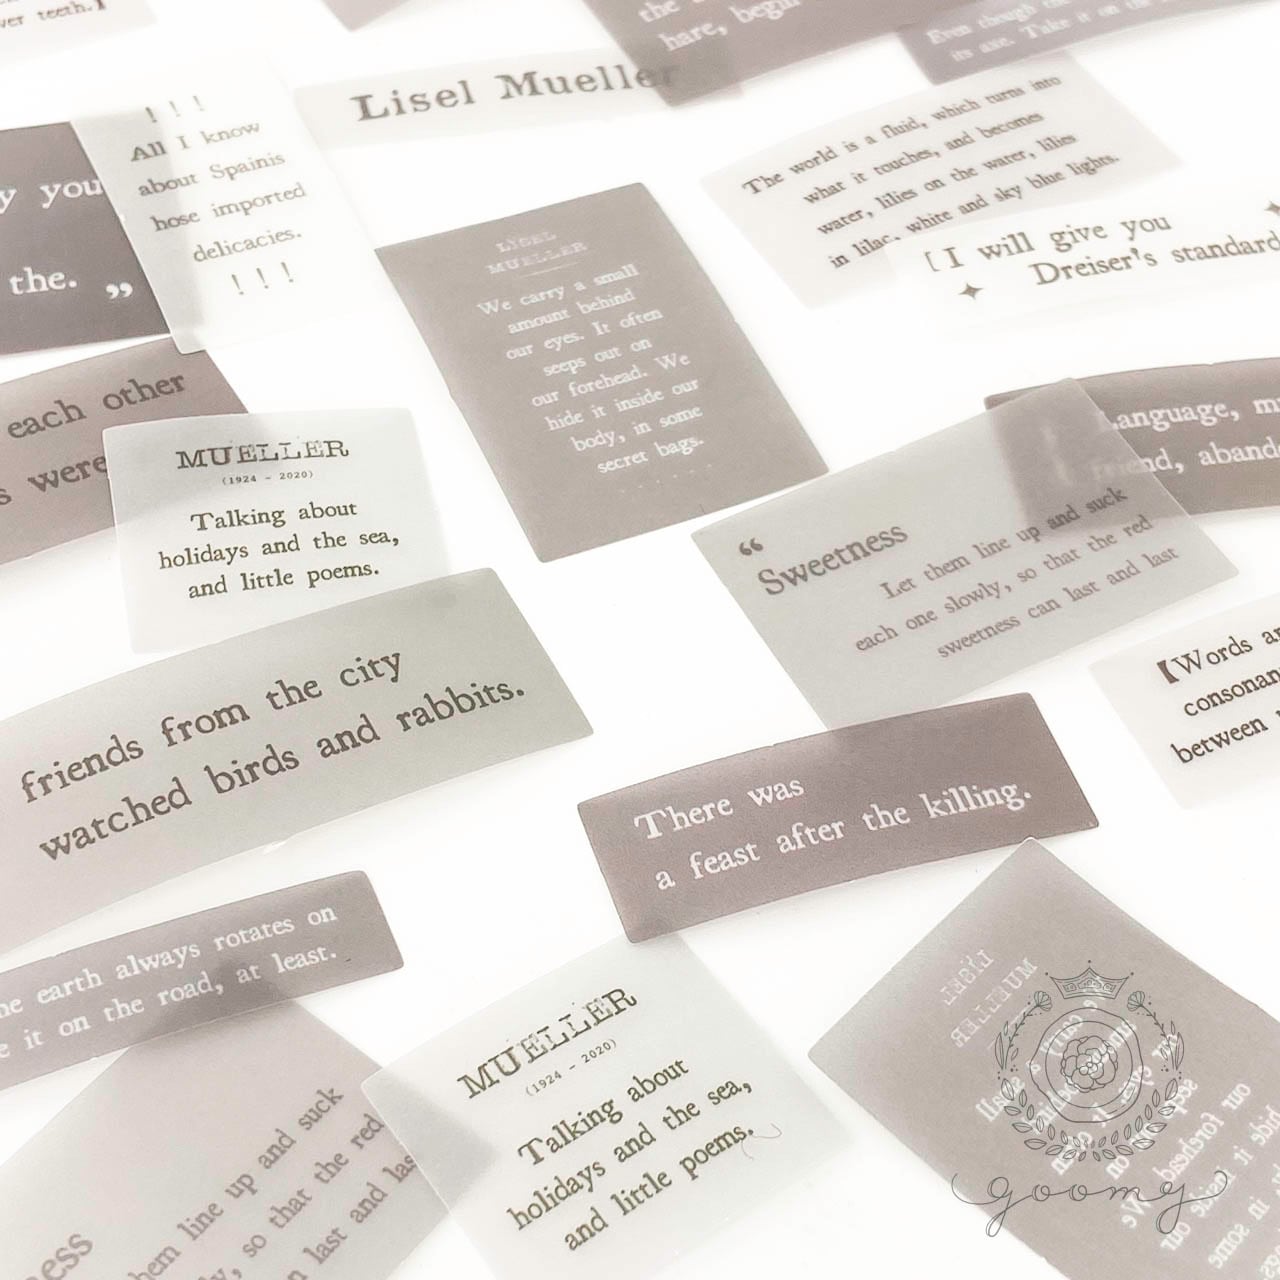 ver teeth.】
the
hare, begin
Even though the
its axe. Take it on the
Lisel Mueller
! ! !
All I know
about Spainis
hose imported
delicacies.
! ! !
y you
the. ”
The world is a fluid, which turns into
what it touches, and becomes
water, lilies on the water, lilies
in lilac, white and sky blue lights.
[ I will give you
Dreiser's standard
LISEL
MUELLER
We carry a small
amount behind
our eyes. It often
seeps out on
our forehead. We
hide it inside our
body, in some
secret bags.
each other
s were
MUELLER
(1924 - 2020)
Talking about
holidays and the sea,
and little poems.
Language, m
friend, aband
“
Sweetness
Let them line up and suck
each one slowly, so that the red
sweetness can last and last
【Words a
consonan
between
friends from the city
watched birds and rabbits.
There was
a feast after the killing.
he earth always rotates on
e it on the road, at least.
ess
hem line up and suck
y, so that the red
n last and las
MUELLER
(1924 - 2020)
Talking about
holidays and the sea,
and little poems.
LISEL
MUELLER
our forehead
hide it inside our
in some
goomy